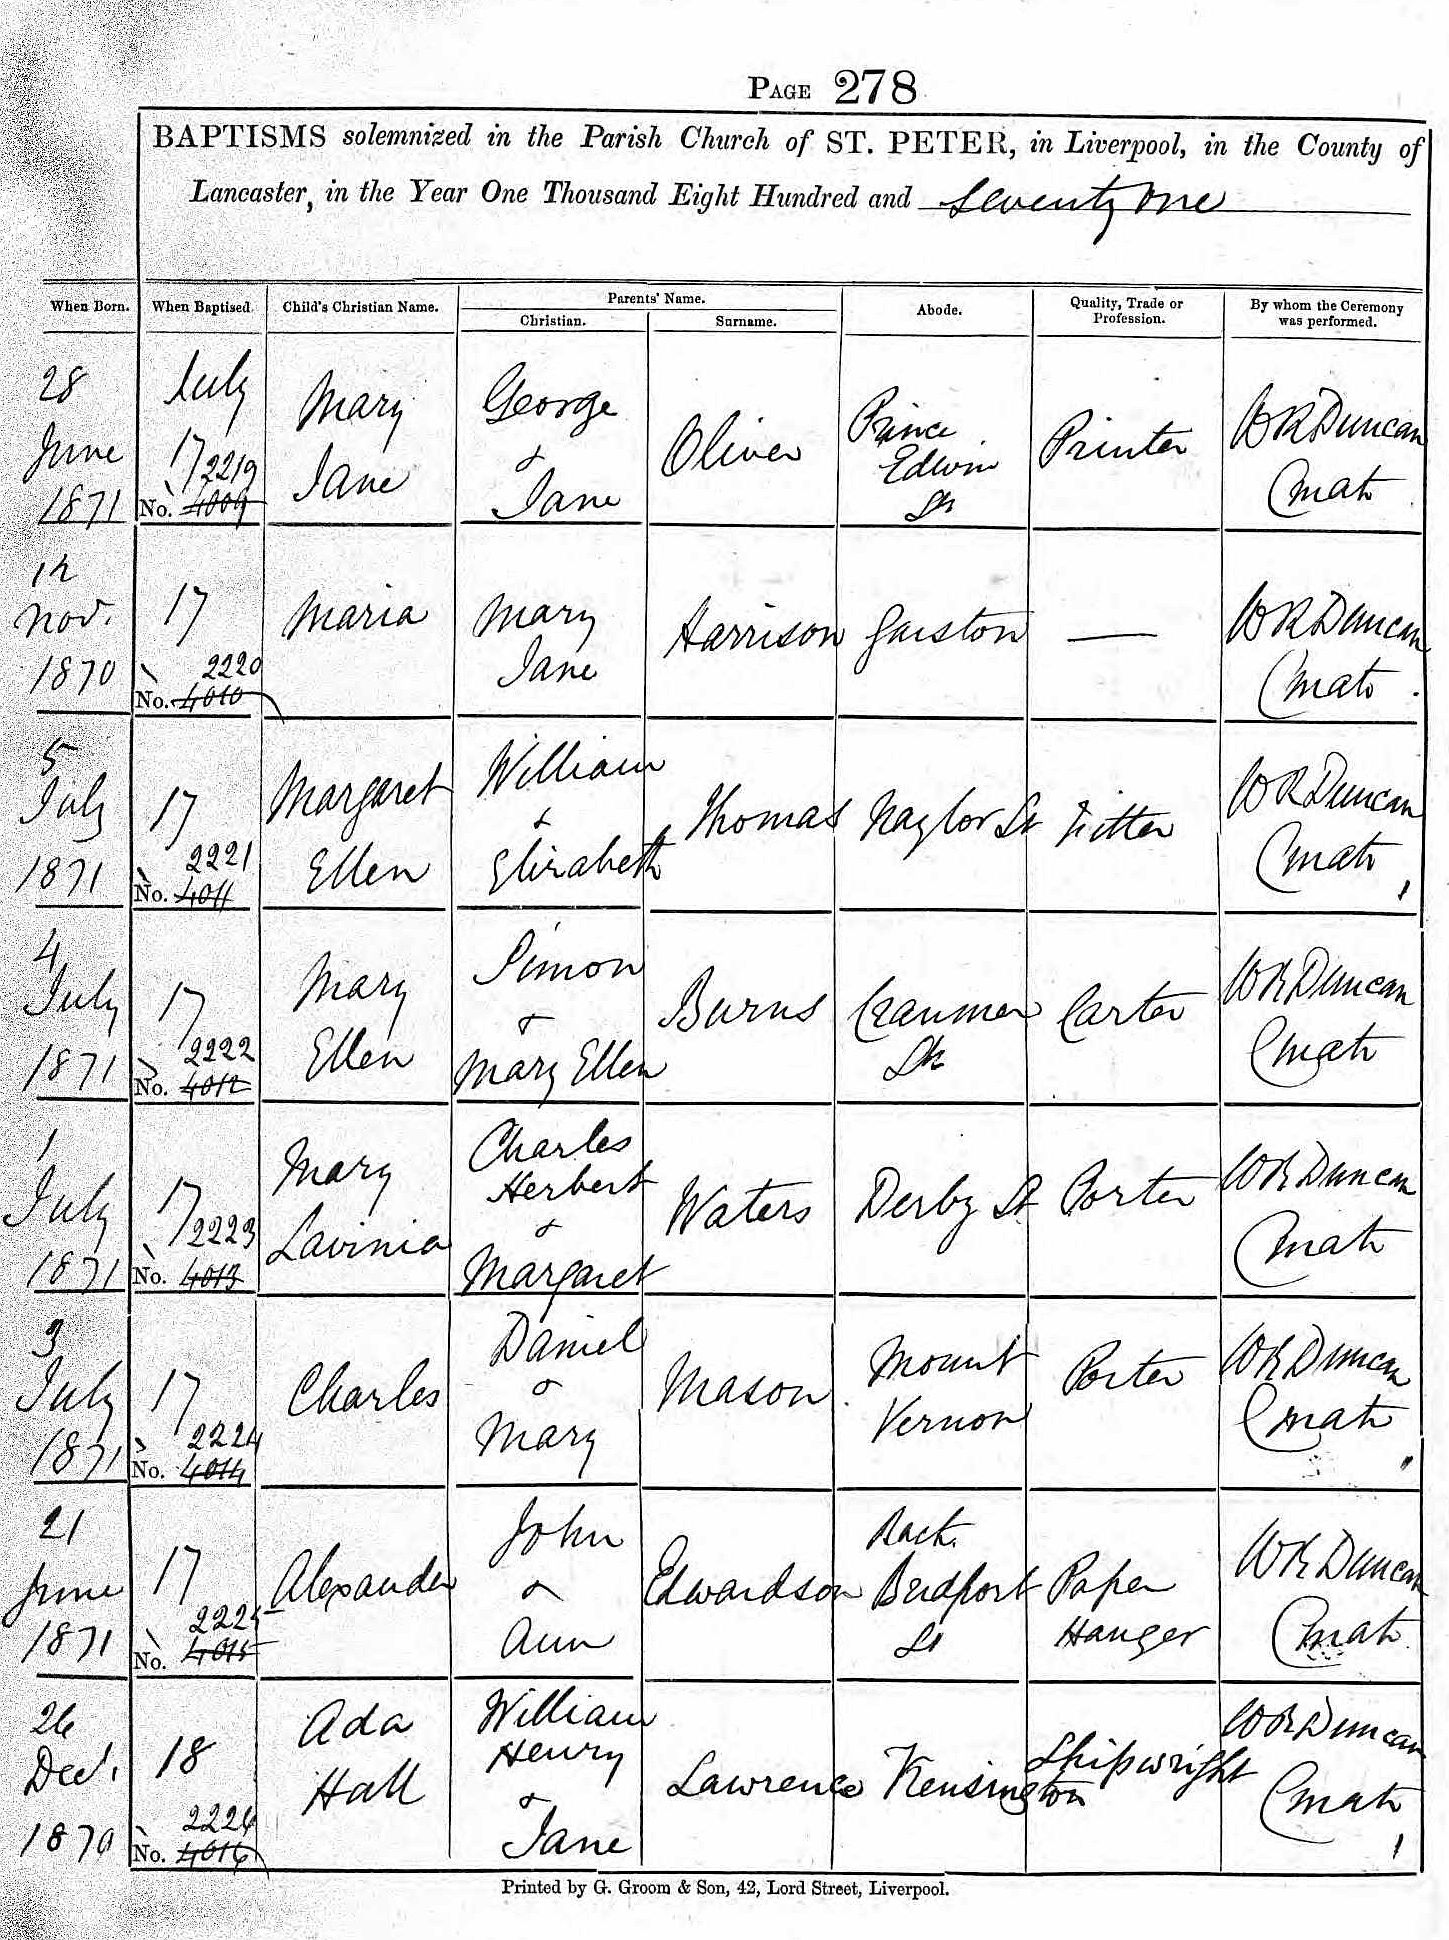 PAGE 278
BAPTISMS solemnized in the Parish Church of ST. PETER, in Liverpool, in the County of
Lancaster, in the Year One Thousand Eight Hundred and Seventy One
When Born. When Baptised. Child's Christian Name. Parents' Name. Abode. Quality, Trade or Profession. By whom the Ceremony was performed.
Christian. Surname.
28 June 1871 July 17 2219 No. 4009 Mary Jane George & Jane Oliver Prince Edwin St Printer W R Duncan Curate
12 Nov. 1870 17 2220 No. 4010 Maria Mary Jane Harrison Garston — W R Duncan Curate
5 July 1871 17 2221 No. 4011 Margaret Ellen William & Elizabeth Thomas Naylor St Fitter W R Duncan Curate
4 July 1871 17 2222 No. 4012 Mary Ellen Simon & Mary Ellen Burns Cranmer St Carter W R Duncan Curate
1 July 1871 17 2223 No. 4013 Mary Lavinia Charles Herbert & Margaret Waters Derby St Porter W R Duncan Curate
3 July 1871 17 2224 No. 4014 Charles Daniel & Mary Mason Mount Vernon Porter W R Duncan Curate
21 June 1871 17 2225 No. 4015 Alexander John & Ann Edwardson Back Bridport St Paper Hanger W R Duncan Curate
26 Decr. 1870 18 2226 No. 4016 Ada Hall William Henry & Jane Lawrence Kensington Shipwright W R Duncan Curate
Printed by G. Groom & Son, 42, Lord Street, Liverpool.